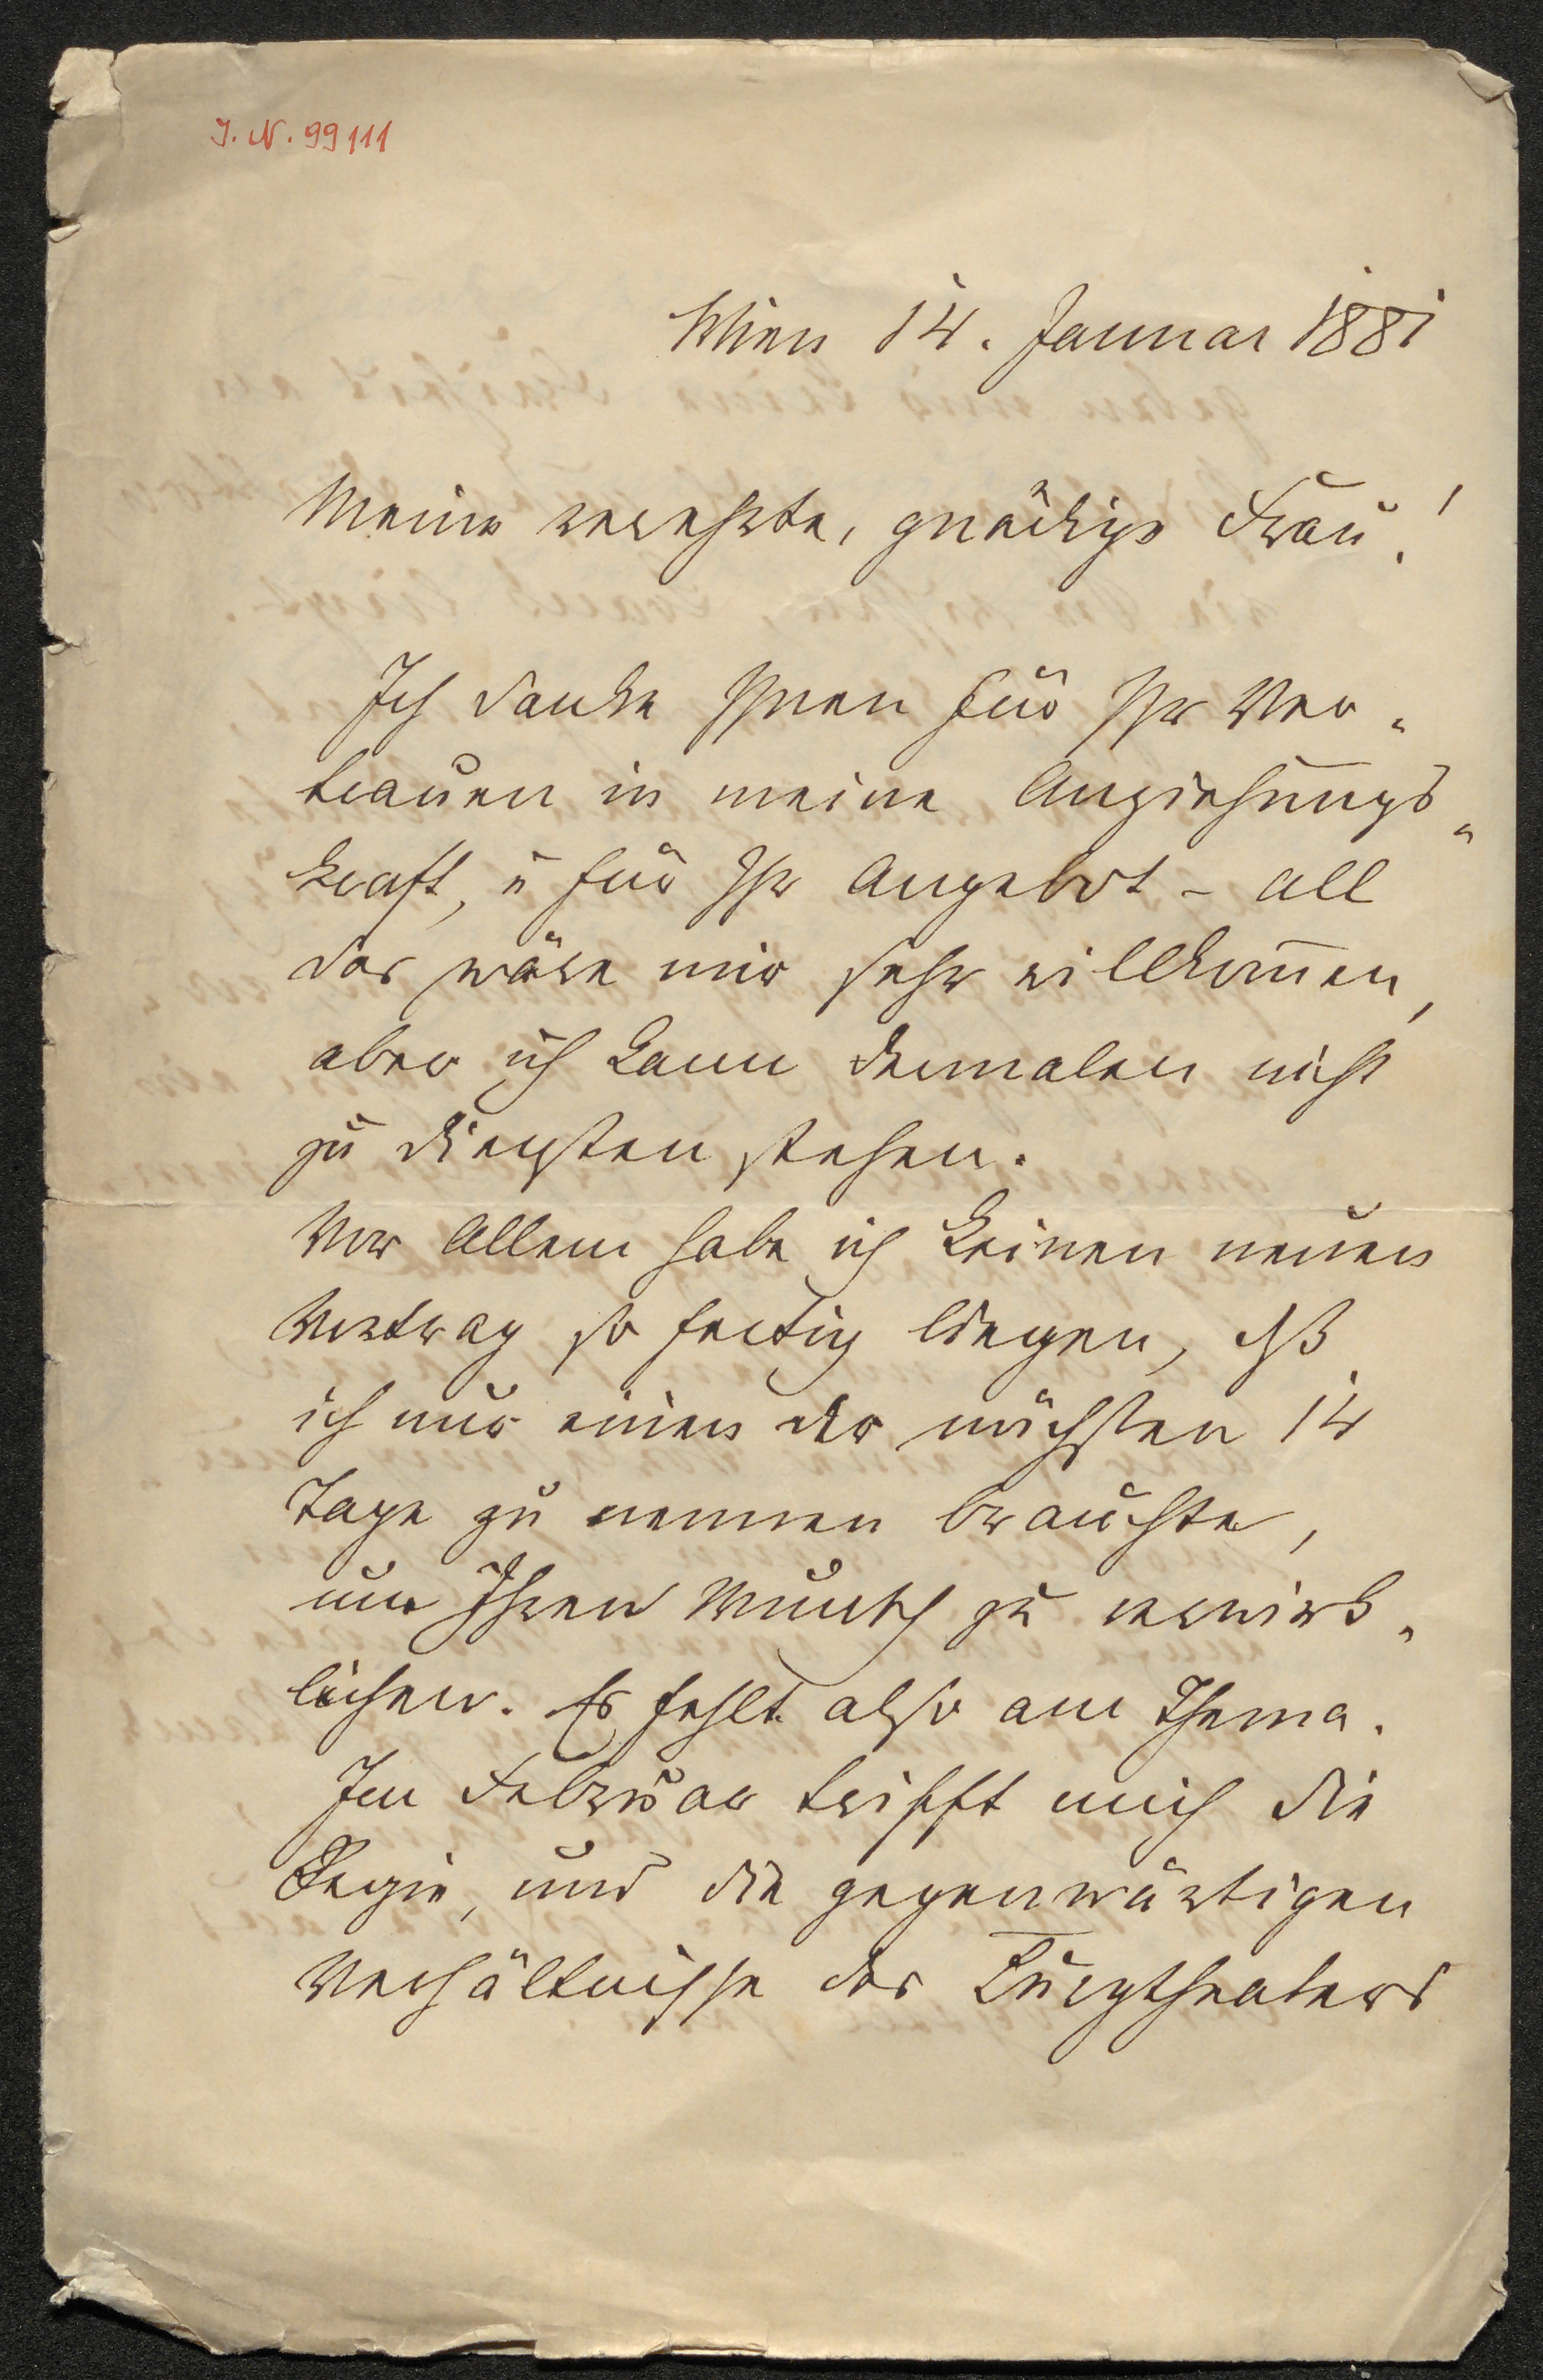 J. N. 99111
Wien 14. Januar 1881
Meine verehrte, gnädige Frau!
Ich danke Ihnen für Ihr Ver-
trauen in meine Anziehungs-
kraft, u für Ihr Angebot - all
das wäre mir sehr willkom̅en,
aber ich kann dermalen nicht
zu Diensten stehen.
Vor Allem habe ich keinen neuen
Vortrag so fertig liegen, dß
ich nur einen der nächsten 14
Tage zu nennen brauchte,
um Ihren Wunsch zu verwirk-
lichen. Es fehlt also am Thema.
Im Februar trifft mich die
Regie, und die gegenwärtigen
Verhältnisse des Burgtheaters